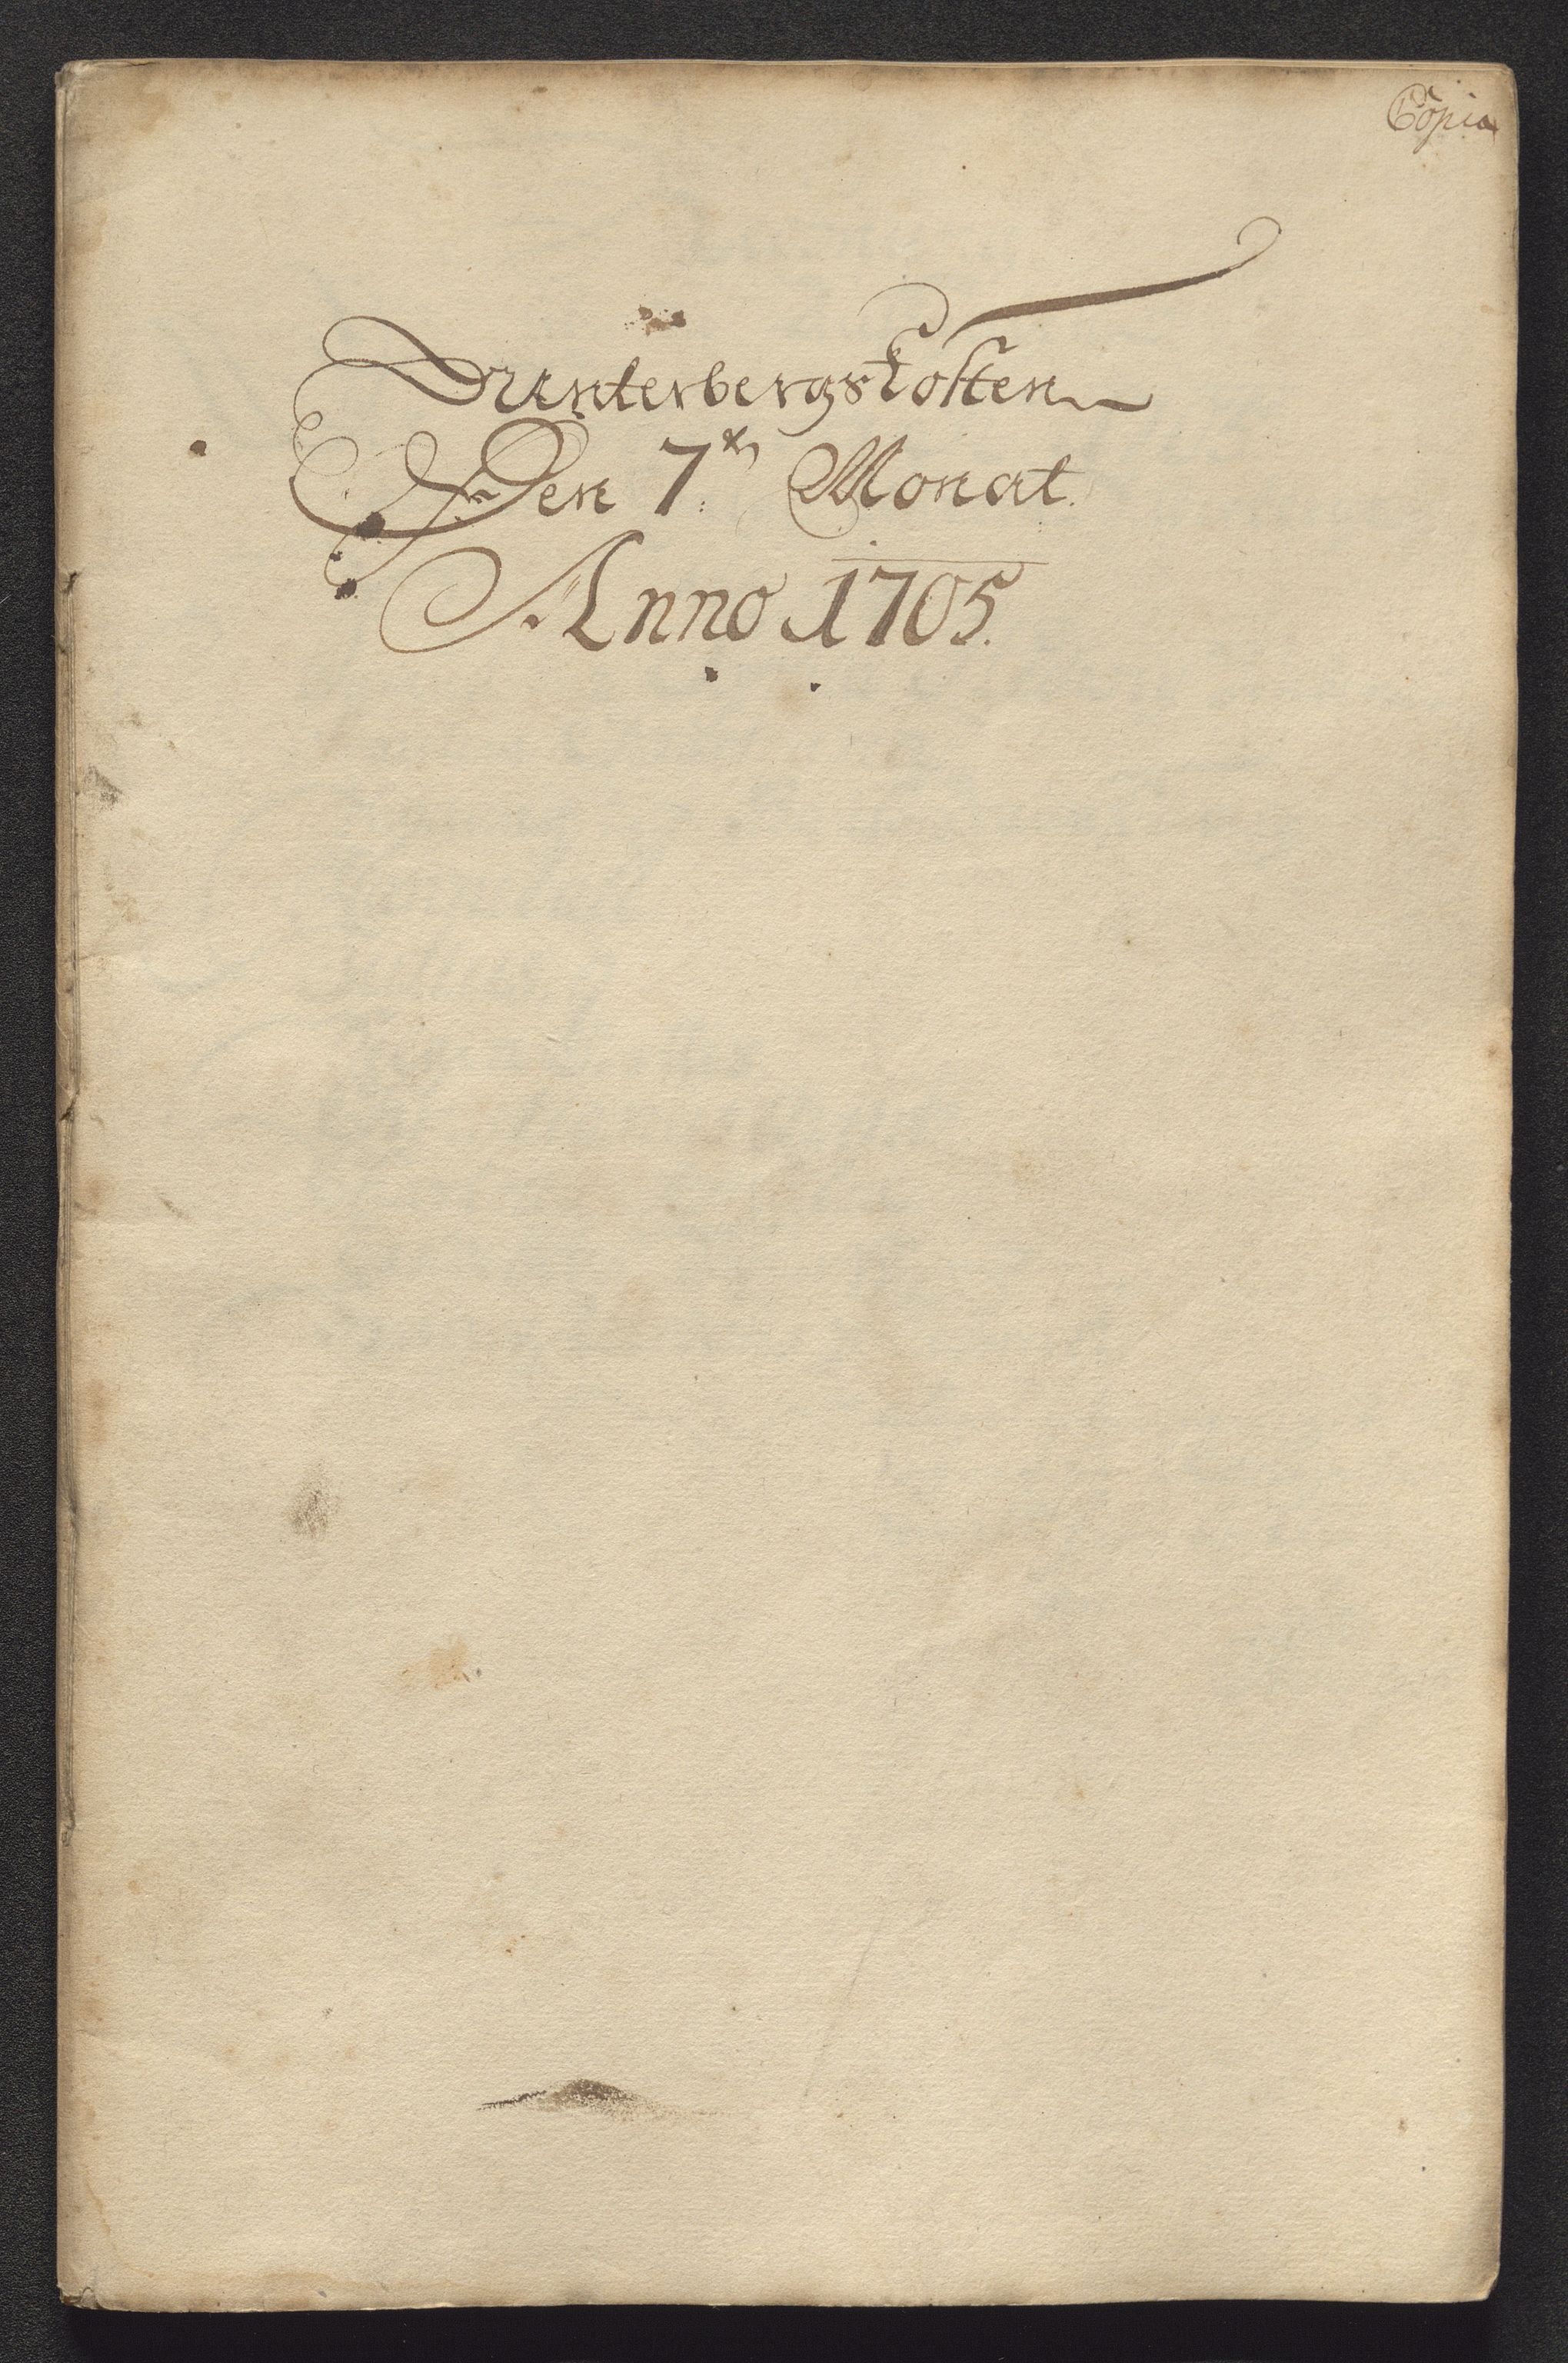 Copia
Unterbergskosten
Den 7.ten Monat.
Anno 1705.